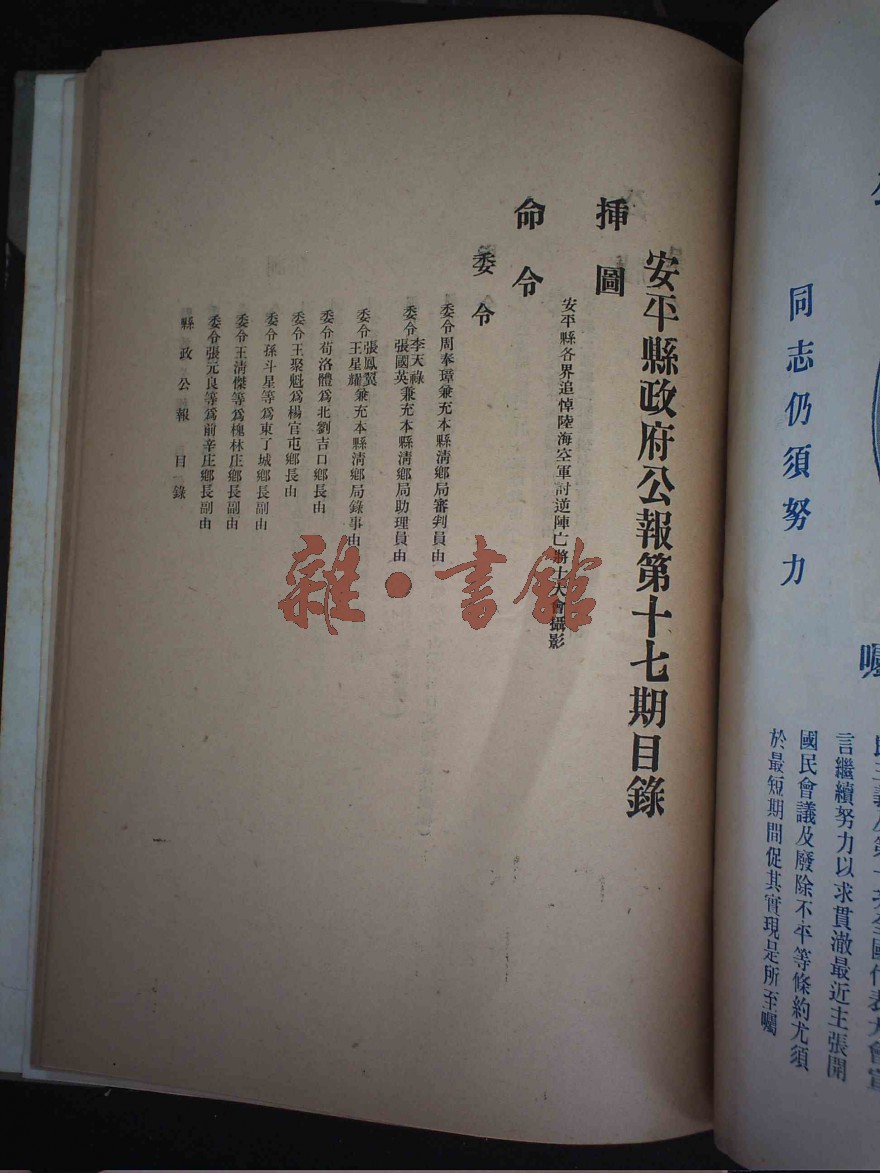 同志仍須努力
囑
言繼續努力以求貫澈最近主張開
國民會議及廢除不平等條約尤須
於最短期間促其實現是所至囑
安平縣政府公報第十七期目錄
揷圖
安平縣各界追悼陸海空軍討逆陣亡將士大會攝影
命令
委令
委令周奉璋兼充本縣淸鄉局審判員由
委令李天祿張國英兼充本縣淸鄉局助理員由
委令張鳳翼王星耀兼充本縣淸鄉局錄事由
委令荀洛體爲北劉吉口鄉長由
委令王聚魁爲楊官屯鄉長由
委令孫斗星等爲東了城鄉長副由
委令王淸傑等爲槐林庄鄉長副由
委令張元良等爲前辛庄鄉長副由
縣政公報 目錄 一
雜·書館